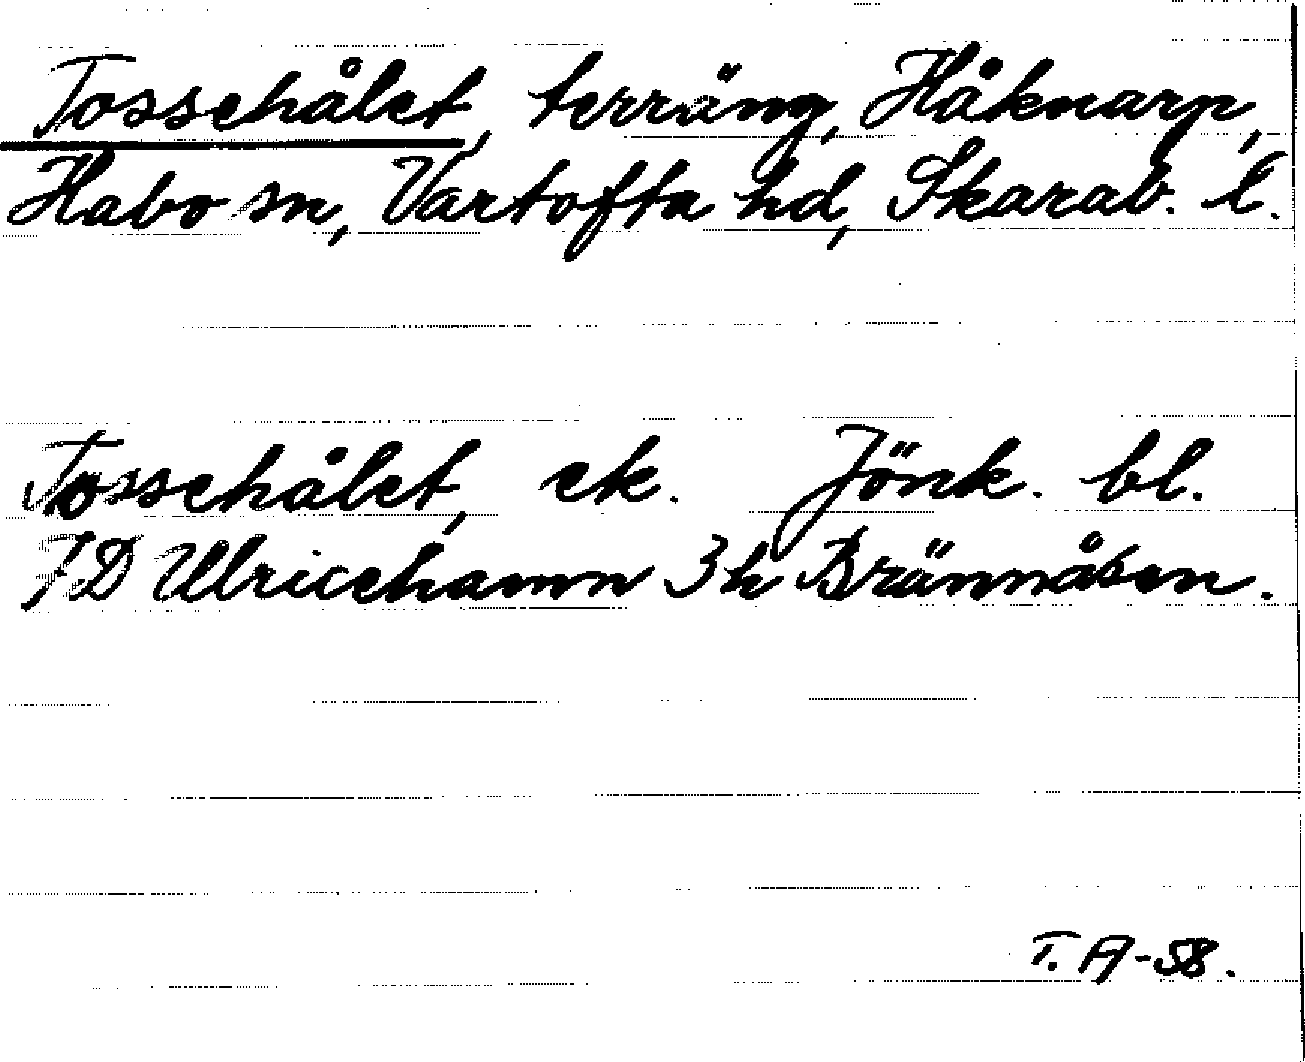 Tossehålet, terräng, Håknarp,
Habo sn, Vartofta hd, Skarab. l.
Tossehålet, ek. Jönk. bl.
7D Ulricehamn 3h Brännåsen.
T. A-58.